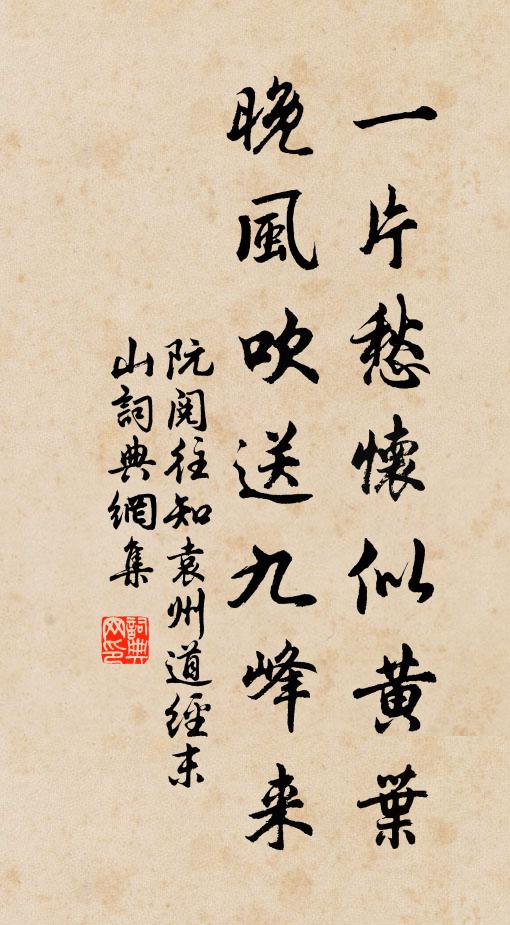 一片愁懷似黃葉
晚風吹送九峰来
阮閱往知袁州道經末
山詞典網集
詞典網印